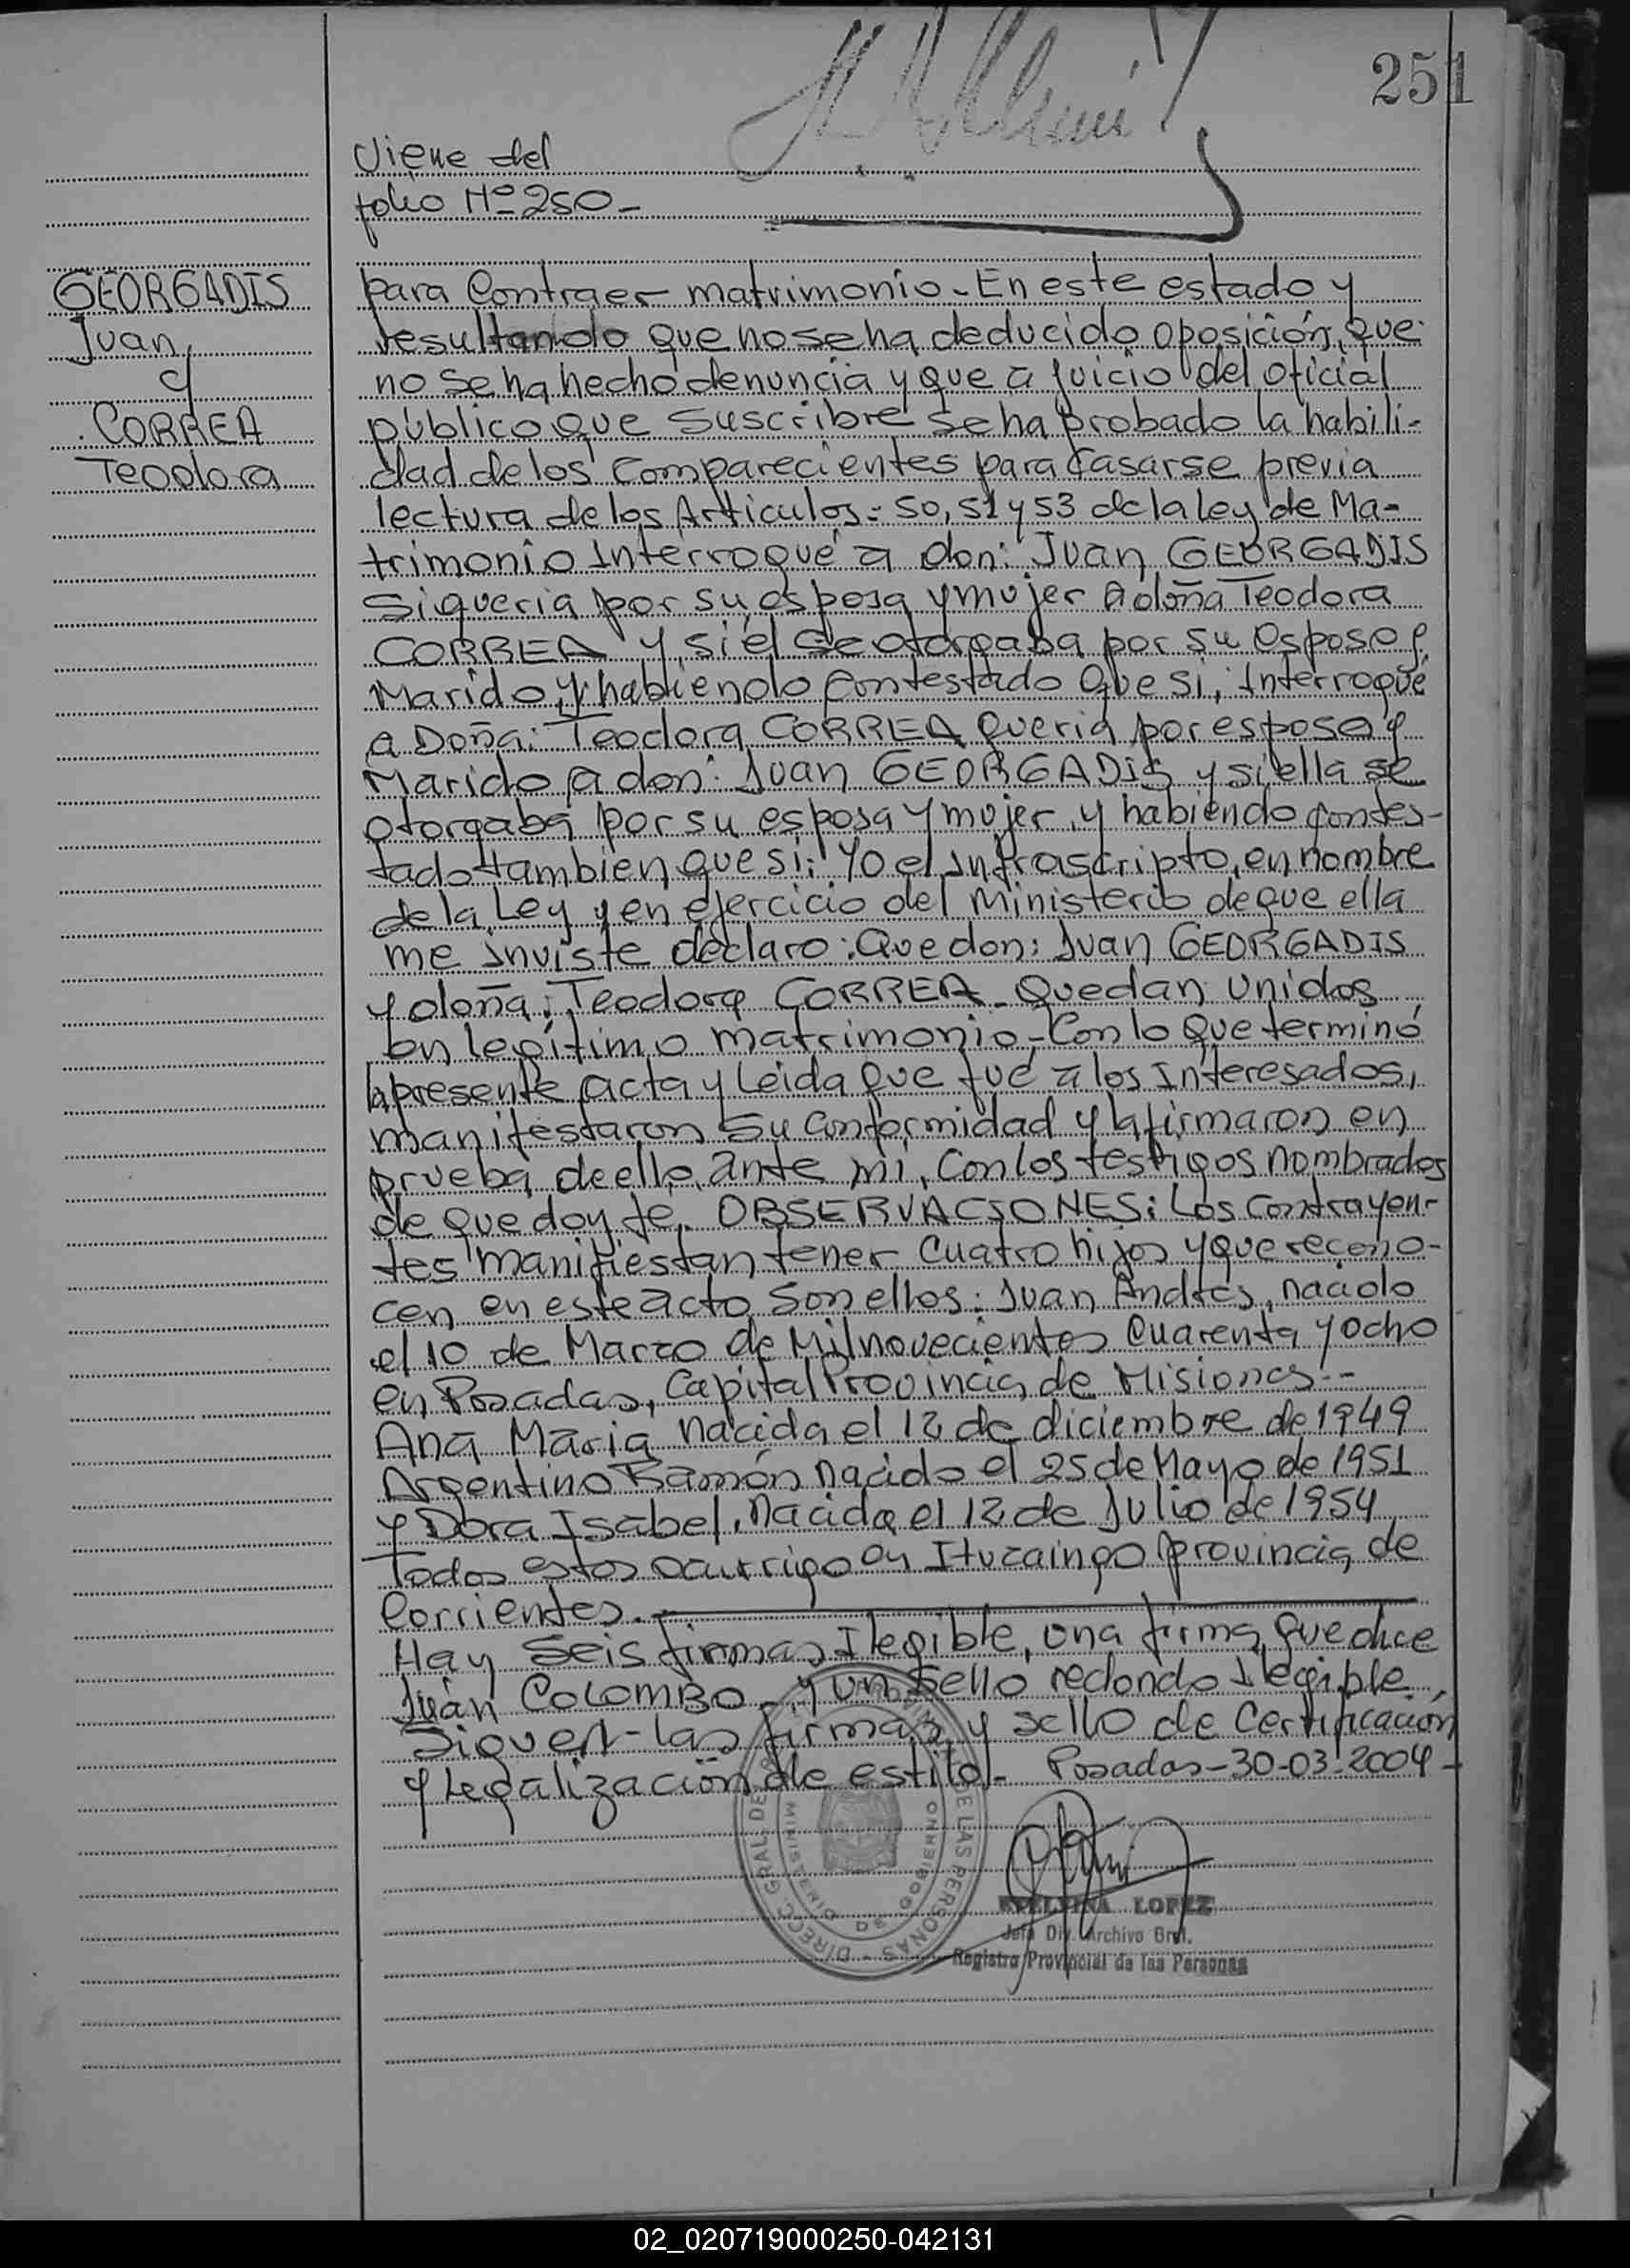 251
Viene del
folio Nº 250-
GEORGADIS
Juan
c/
CORREA
Teodora
para Contraer matrimonio - En este estado y
resultando que no se ha deducido oposición, que
no se ha hecho denuncia y que a juicio del oficial
público que suscribre se ha probado la habili-
dad de los comparecientes para casarse previa
lectura de los Articulos: 50, 51 y 53 de la ley de Ma-
trimonio Interroqué a don: Juan GEORGADIS
si queria por su esposa y mujer a doña Teodora
CORREA y si él se otorgaba por su esposo y
Marido y habiendo contestado que si, Interroqué
a Doña: Teodora CORREA queria por esposo y
Marido a don: Juan GEORGADIS y si ella se
otorgaba por su esposa y mujer, y habiendo contes-
tado tambien que si; Yo el Infrascripto, en nombre
de la Ley y en ejercicio del Ministerio de que ella
me inviste declaro: Que don: Juan GEORGADIS
y doña: Teodora CORREA - Quedan unidos
en legítimo matrimonio - Con lo que terminó
la presente acta y leida que fué a los Interesados,
manifestaron su conformidad y la firmaron en
prueba de ello, ante mi, con los testigos nombrados
de que doy fé. OBSERVACIONES: Los Contrayen-
tes manifiestan tener cuatro hijos y que recono-
cen en este acto son ellos: Juan Andrés, nacido
el 10 de Marzo de Mil novecientos cuarenta y ocho
en Posadas, Capital Provincia de Misiones --
Ana Maria nacida el 12 de diciembre de 1949
Argentino Ramón nacido el 25 de Mayo de 1951
y Dora Isabel, nacida el 12 de Julio de 1954
Todos estos ocurrigo en Ituzaingo provincia de
Corrientes.
Hay seis firmas Ilegible, una firma que dice
Juan COLOMBO - y un sello redondo Ilegible.
Siguen las firmas y sello de Certificación
y Legalización de estilo - Posadas - 30-03-2004 -
DIRECC. GRAL. DE LAS PERSONAS
MINISTERIO DE GOBIERNO
EVELVINA LOPEZ
Jefa Div. Archivo Gral.
Registro Provincial de las Personas
02_020719000250-042131